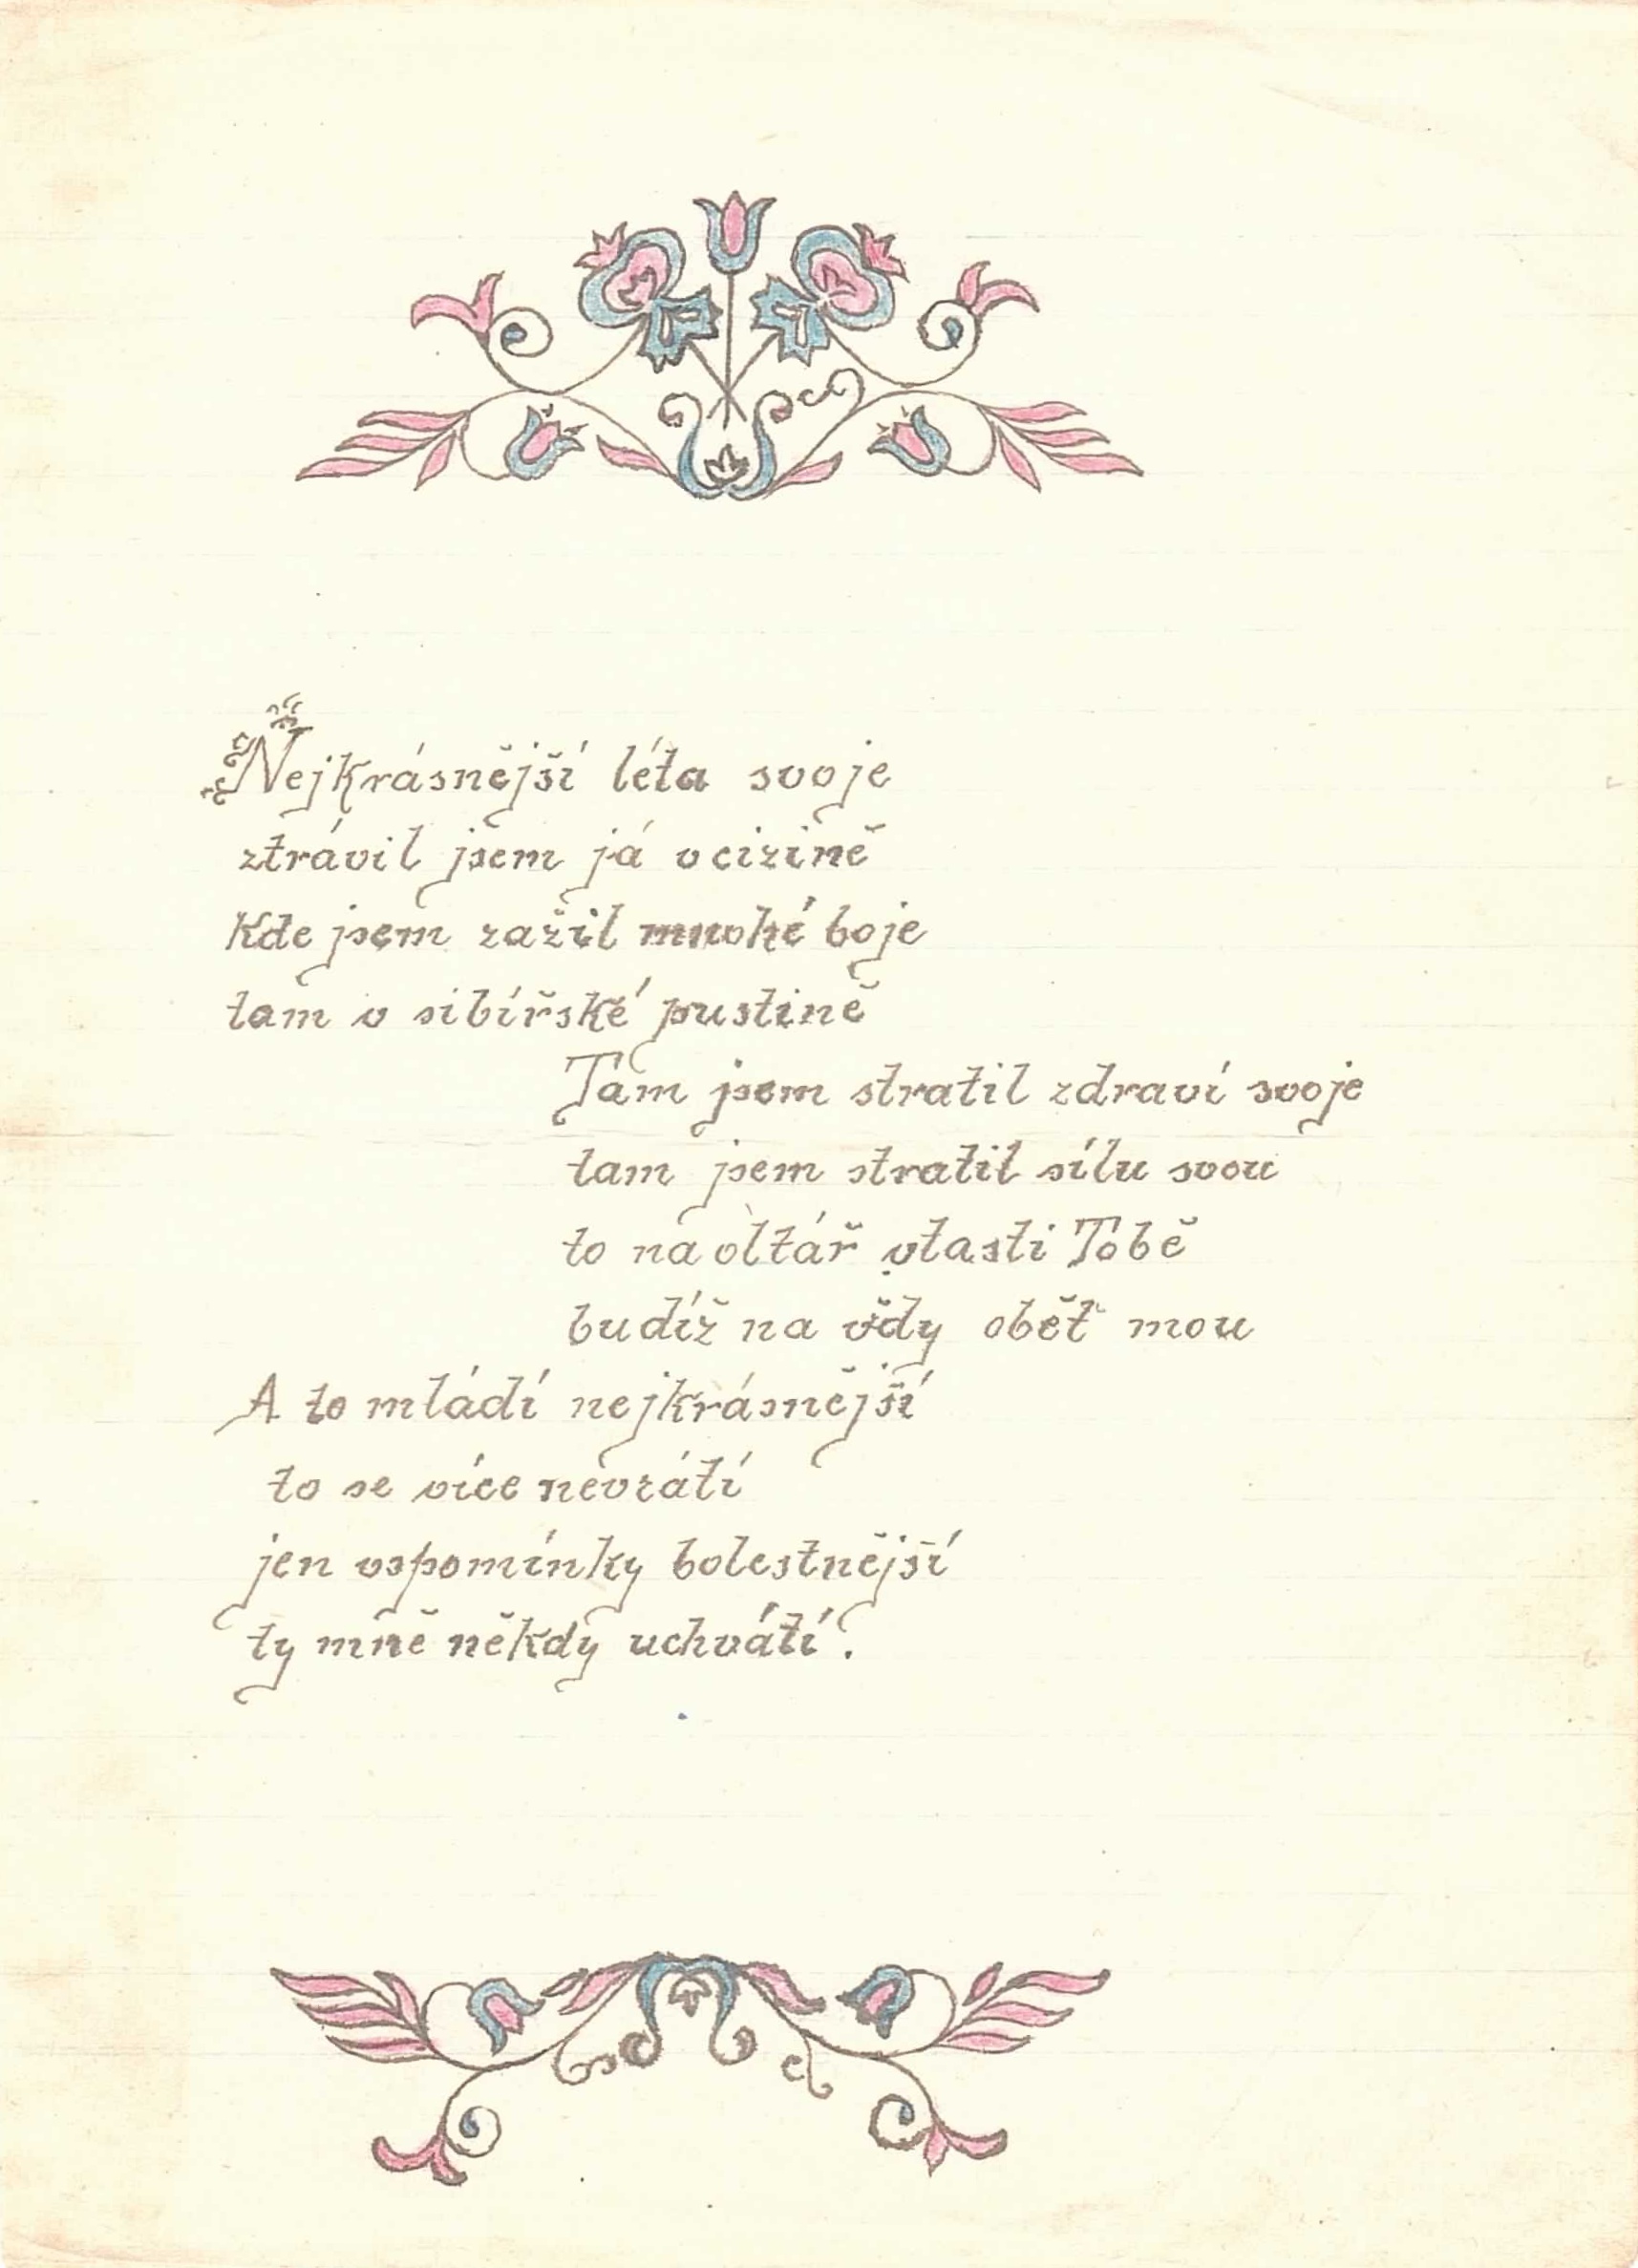 Nejkrásnější léta svoje
ztrávil jsem já v cizině
Kde jsem zažil mnohé boje
tam v sibířské pustině
Tam jsem stratil zdraví svoje
tam jsem stratil sílu svou
to na oltář vlasti Tobě
budíž na vždy oběť mou
A to mládí nejkrásnější
to se více nevrátí
jen vspomínky bolestnější
ty mně někdy uchvátí.